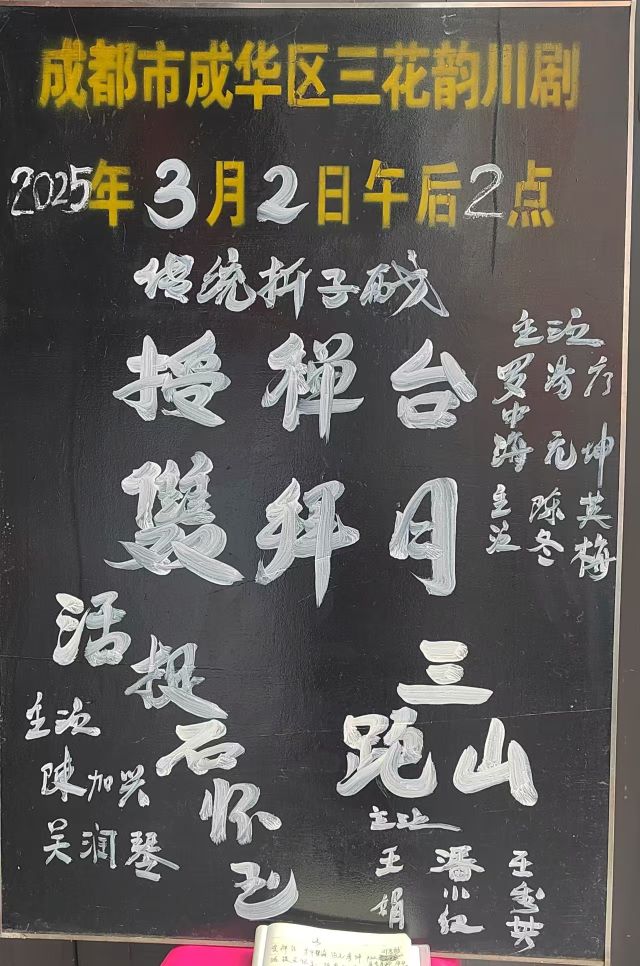 成都市成华区三花韵川剧
2025年3月2日午后2点
传统折子戏
授禅台
主演
罗中海
汤元
方坤
雙拜月
主演
陈冬
英梅
活捉石怀玉
主演
陳加兴
吴润琴
三跑山
主演
王娟
潘小红
王秀英